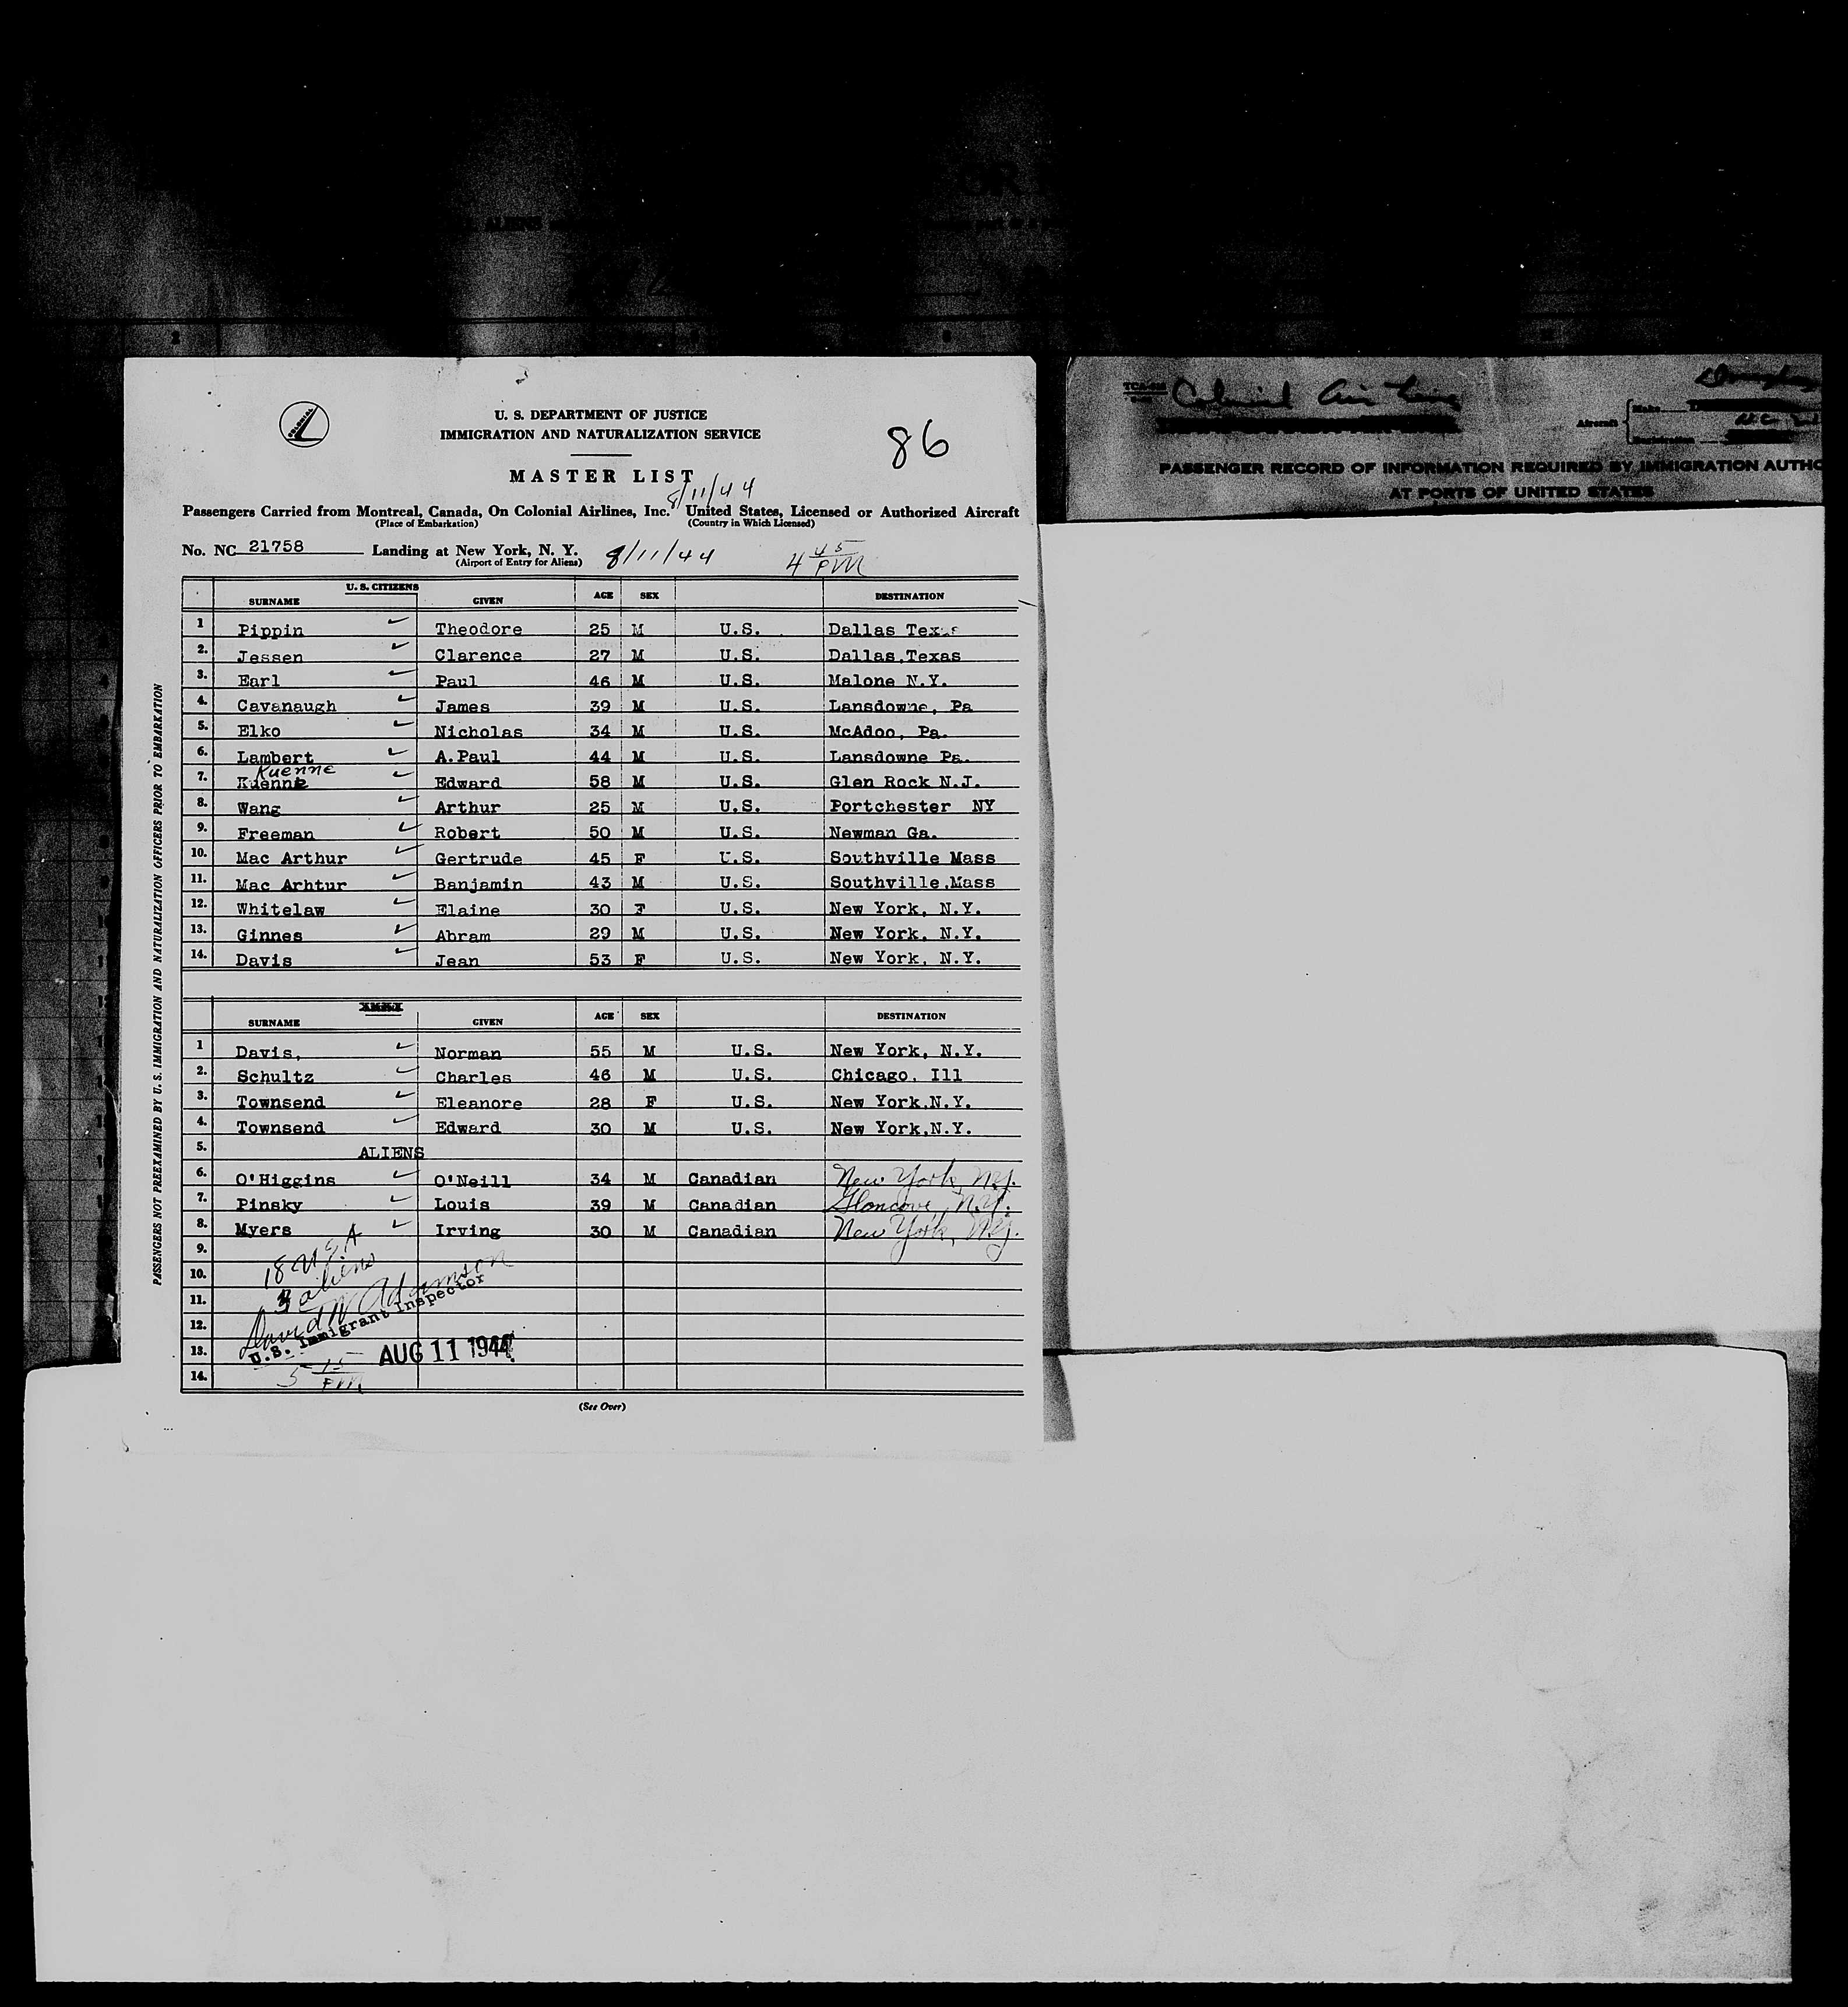 COLONIAL
U. S. DEPARTMENT OF JUSTICE
IMMIGRATION AND NATURALIZATION SERVICE
86
MASTER LIST
8/11/44
Passengers Carried from Montreal, Canada, On Colonial Airlines, Inc. United States, Licensed or Authorized Aircraft
(Place of Embarkation) (Country in Which Licensed)
No. NC 21758 Landing at New York, N. Y. 8/11/44 4 45 PM
(Airport of Entry for Aliens)
U. S. CITIZENS
SURNAME GIVEN AGE SEX DESTINATION
1 Pippin Theodore 25 M U.S. Dallas Texas
2. Jessen Clarence 27 M U.S. Dallas,Texas
3. Earl Paul 46 M U.S. Malone N.Y.
4. Cavanaugh James 39 M U.S. Lansdowne, Pa
5. Elko Nicholas 34 M U.S. McAdoo, Pa.
6. Lambert A.Paul 44 M U.S. Lansdowne Pa.
Kuenne
7. Kuenne Edward 58 M U.S. Glen Rock N.J.
8. Wang Arthur 25 M U.S. Portchester NY
9. Freeman Robert 50 M U.S. Newman Ga.
10. Mac Arthur Gertrude 45 F U.S. Southville Mass
11. Mac Arhtur Banjamin 43 M U.S. Southville,Mass
12. Whitelaw Elaine 30 F U.S. New York, N.Y.
13. Ginnes Abram 29 M U.S. New York, N.Y.
14. Davis Jean 53 F U.S. New York, N.Y.
SURNAME GIVEN AGE SEX DESTINATION
1 Davis, Norman 55 M U.S. New York, N.Y.
2. Schultz Charles 46 M U.S. Chicago, Ill
3. Townsend Eleanore 28 F U.S. New York,N.Y.
4. Townsend Edward 30 M U.S. New York,N.Y.
5. ALIENS
6. O'Higgins O'Neill 34 M Canadian New York, N.Y.
7. Pinsky Louis 39 M Canadian Glencove, N.Y.
8. Myers Irving 30 M Canadian New York, N.Y.
9.
10. 18 USA
11. 3 aliens
12. David W Adamson
U.S. Immigrant Inspector
13. AUG 11 1944
14. 5 15 PM
(See Over)
PASSENGERS NOT PREEXAMINED BY U. S. IMMIGRATION AND NATURALIZATION OFFICERS PRIOR TO EMBARKATION
Colonial Air Lines
Aircraft
Make
Registration
PASSENGER RECORD OF INFORMATION REQUIRED BY IMMIGRATION AUTHO
AT PORTS OF UNITED STATES